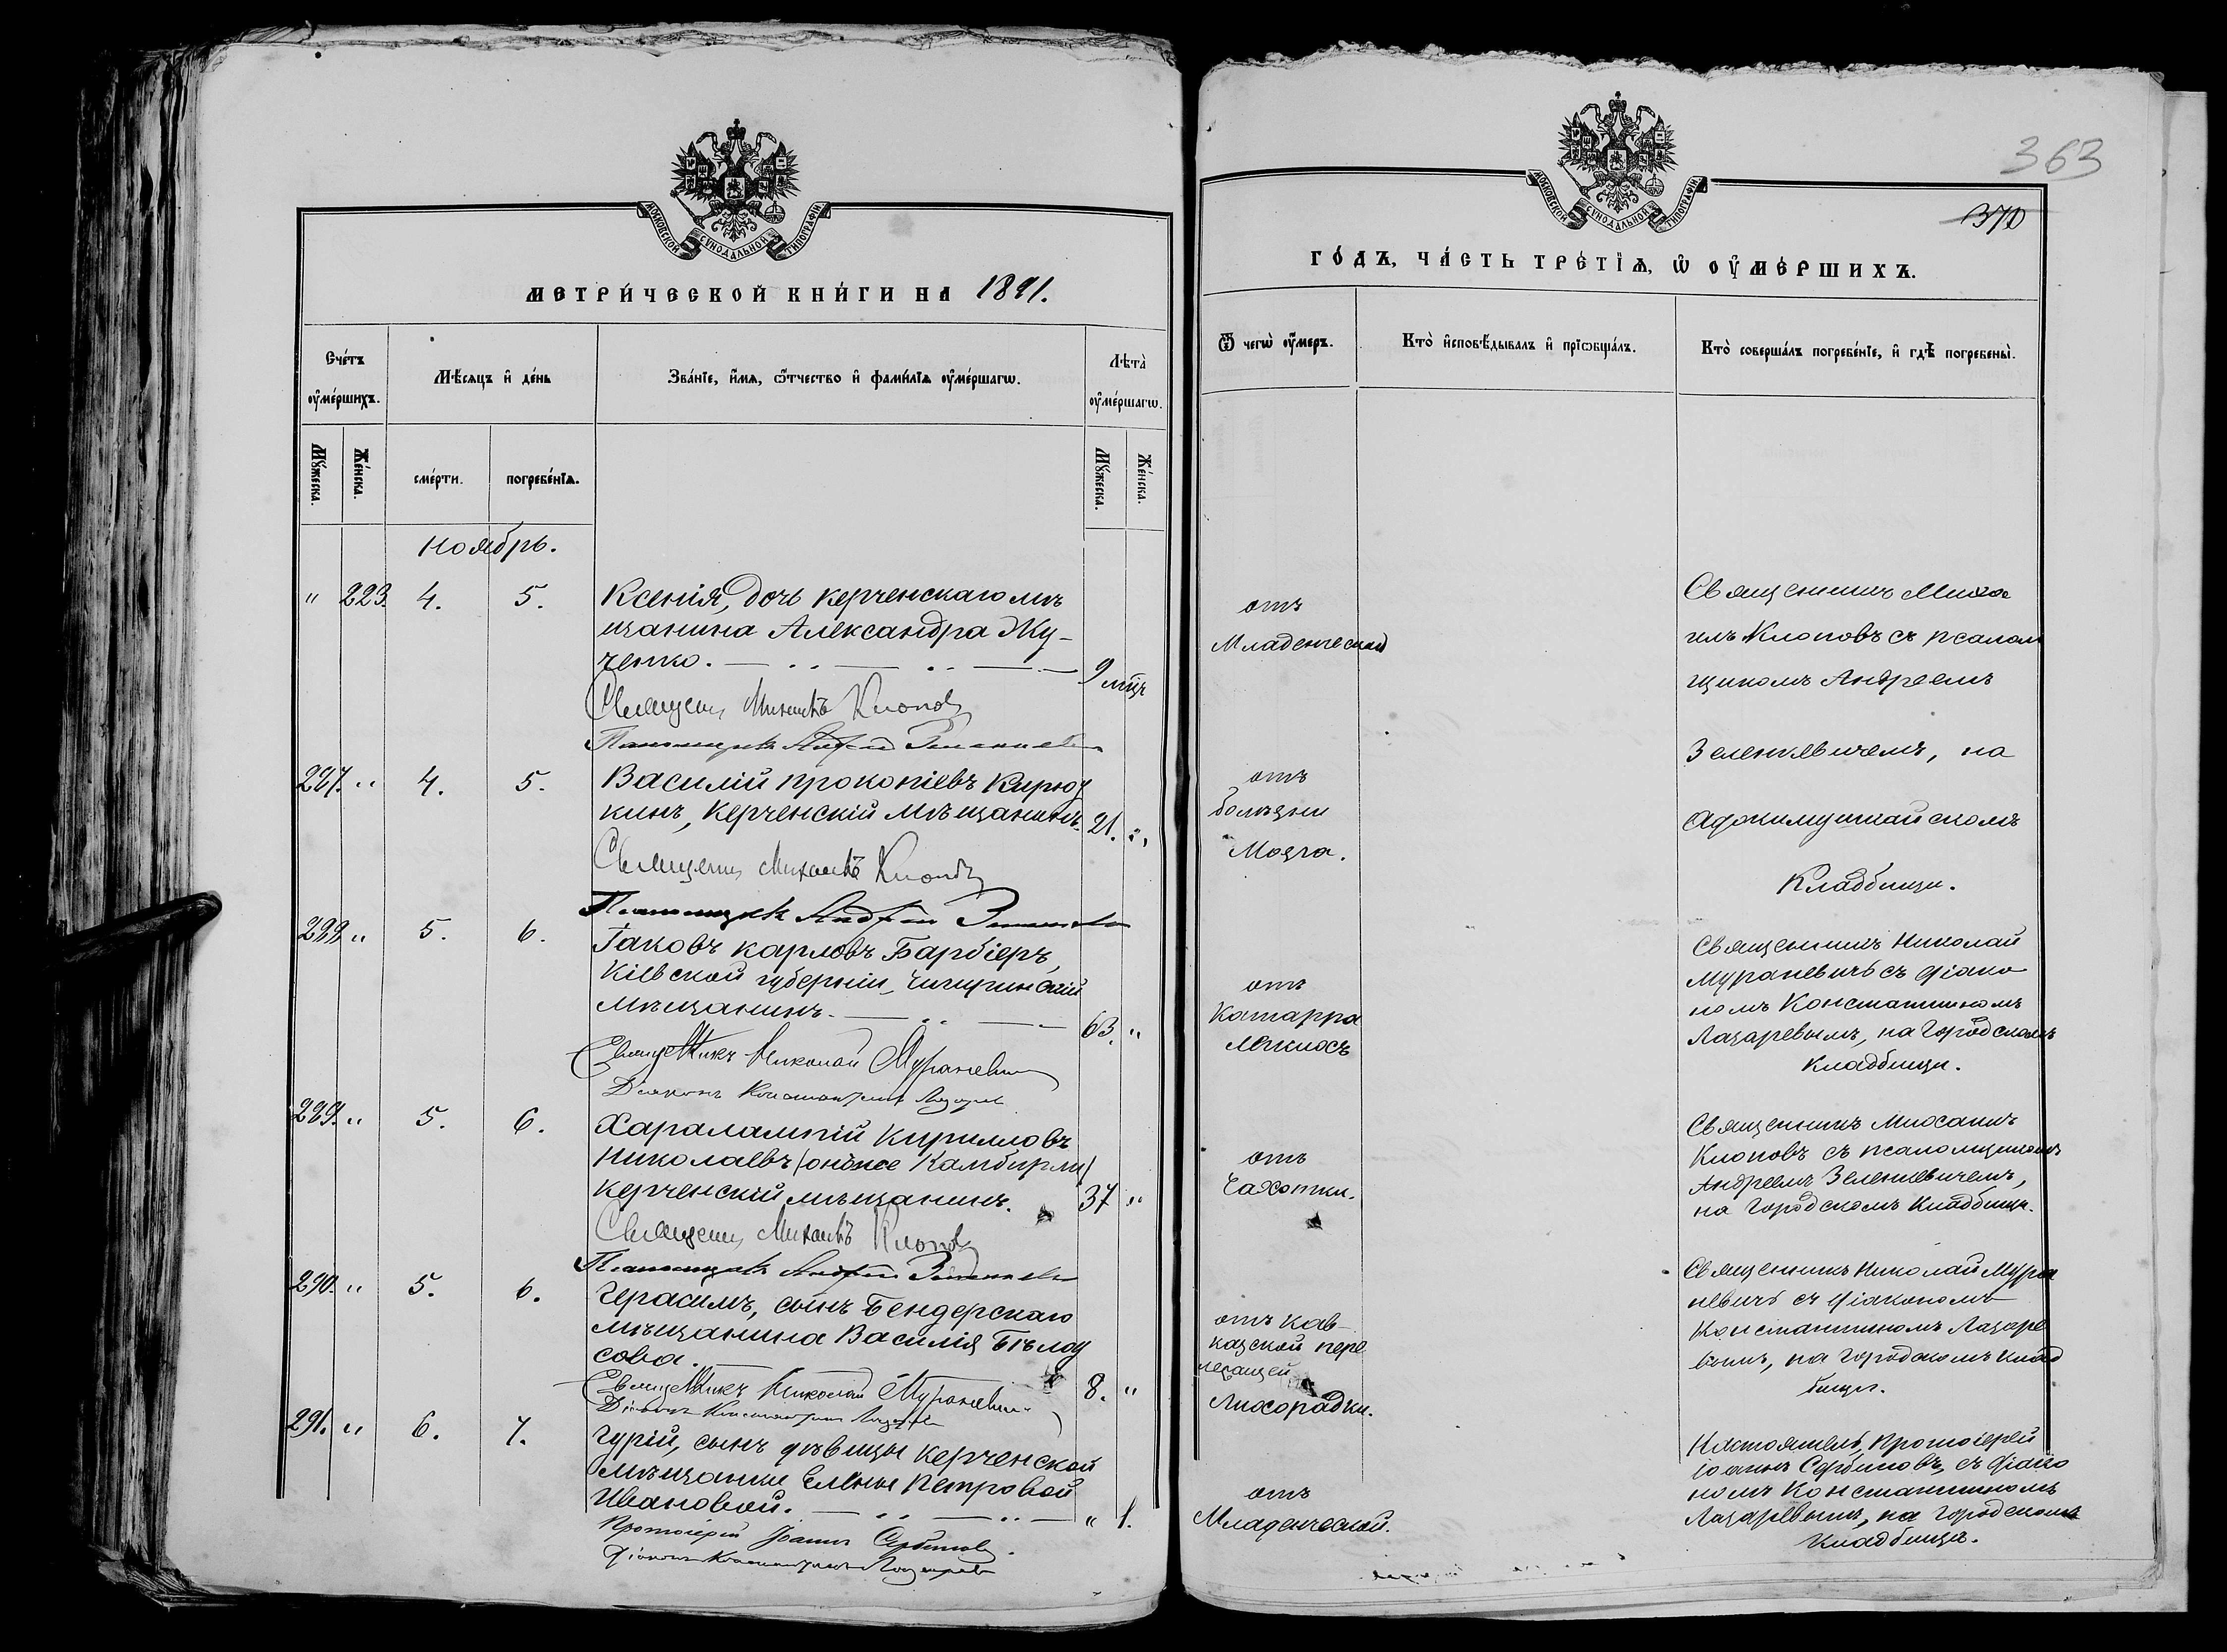 МОСКОВСКОЙ СѴНОДАЛЬНОЙ ТИПОГРАФІИ
МЕТРИ́ЧЕСКОЙ КНИ́ГИ НА 1891.
Сче́тъ ᲂу҆ме́ршихъ.
Мѣ́сяцъ и҆ де́нь
Зва́нїе, и҆́мѧ, ѻ҆́тчество и҆ фами́лїѧ ᲂу҆ме́ршагѡ.
Лѣта̀ ᲂу҆ме́ршагѡ.
Мꙋ́жеска.
Же́нска.
сме́рти.
погребе́нїѧ.
Мꙋ́жеска.
Же́нска.
Ноябрь.
" 223. 4. 5. Ксенія, дочь Керченскаго мѣ
щанина Александра Жу-
ченко. 9 мцъ
Священ. Михаилъ Клоповъ
Псаломщикъ Андрей
287. " 4. 5. Василій Прокопіевъ Кирю
кинъ, Керченскій мѣщанинъ. 21. "
Священ. Михаилъ Клоповъ
Псаломщикъ Андрей
288. " 5. 6. Іаковъ Карловъ Барбіеръ,
Кіевской губерніи, Чигиринскій
мѣщанинъ. 63. "
Священникъ Николай Мураневичъ
Діаконъ Константинъ Лазаревъ
289. " 5. 6. Харалампій Кирилловъ
Николаевъ (онъже Камбурли)
Керченскій мѣщанинъ. 37 "
Священ. Михаилъ Клоповъ
Псаломщикъ Андрей
290. " 5. 6. Герасимъ, сынъ Бендерскаго
мѣщанина Василія Бѣлоу
сова. 8. "
Священникъ Николай Мураневичъ
Діаконъ Константинъ Лазаревъ
291. " 6. 7. Гурій, сынъ дѣвицы Керченской
мѣщанки Елены Петровой
Ивановой. " 1.
Протоіерей Іоаннъ Сербиновъ.
Діаконъ Константинъ Лазаревъ
363
370
МОСКОВСКОЙ СѴНОДАЛЬНОЙ ТИПОГРАФІИ
ГО́ДЪ, ЧА́СТЬ ТРЕ́ТЇѦ, Ѡ҆ ОУ҆МЕ́РШИХЪ.
Ѿ чегѡ̀ ᲂу҆́меръ.
Кто̀ и҆сповѣ́дывалъ и҆ прїѡбща́лъ.
Кто̀ соверша́лъ погребе́нїе, и҆ гдѣ̀ погребены̀.
отъ
Младенческой
Священникъ Миха
илъ Клоповъ съ псалом
щикомъ Андреемъ
Зеленкевичемъ, на
Аджимушкайскомъ
Кладбищи.
отъ
болѣзни
Мозга.
отъ
Катарра
легкихъ
Священникъ Николай
Мураневичъ съ діако
номъ Константиномъ
Лазаревымъ, на Городскомъ
Кладбищи.
отъ
Чахотки.
Священникъ Михаилъ
Клоповъ съ псаломщикомъ
Андреемъ Зеленкевичемъ,
на Городскомъ Кладбищи.
отъ Кав-
казской пере
межающей
Лихорадки.
Священникъ Николай Мура
невичъ съ діакономъ
Константиномъ Лазаре
вымъ, на Городскомъ Клад
бищи.
отъ
Младенческой.
Настоятель, Протоіерей
Іоаннъ Сербиновъ, съ діако
номъ Константиномъ
Лазаревымъ, на Городскомъ
Кладбищи.